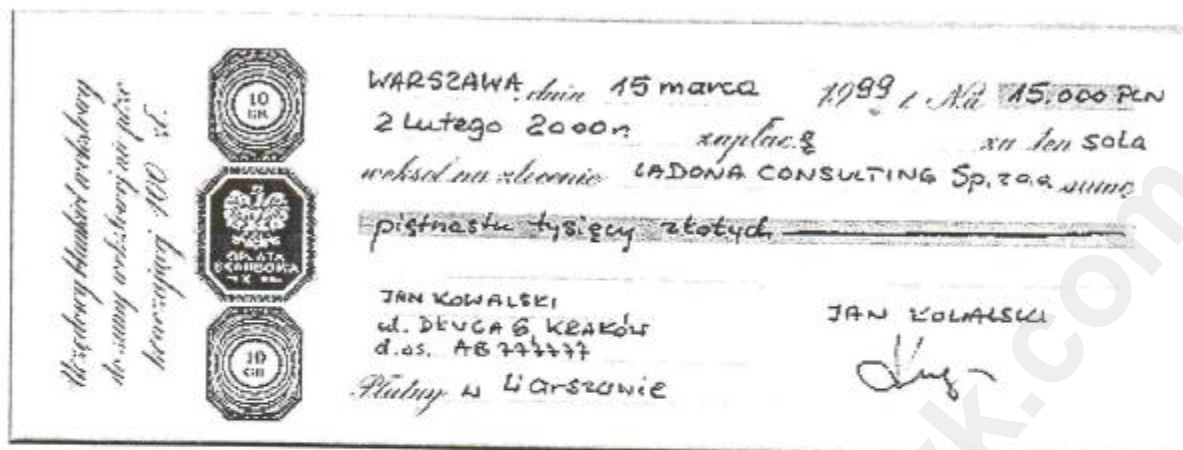 Urzędowy blankiet wekslowy
do sumy wekslowej nie prze-
kraczającej 100 zł.
10
GR
OPŁATA
SKARBOWA
10
GR
WARSZAWA, dnia 15 marca 1999 r. Na 15.000 PLN
2 Lutego 2000r. zapłacę za ten sola
weksel na zlecenie LADONA CONSULTING Sp. z o.o. sumę
piętnastu tysięcy złotych
JAN KOWALSKI
ul. DŁUGA 6, KRAKÓW
d.os. AB 777777
Płatny w Warszawie
JAN KOWALSKI
rk.com